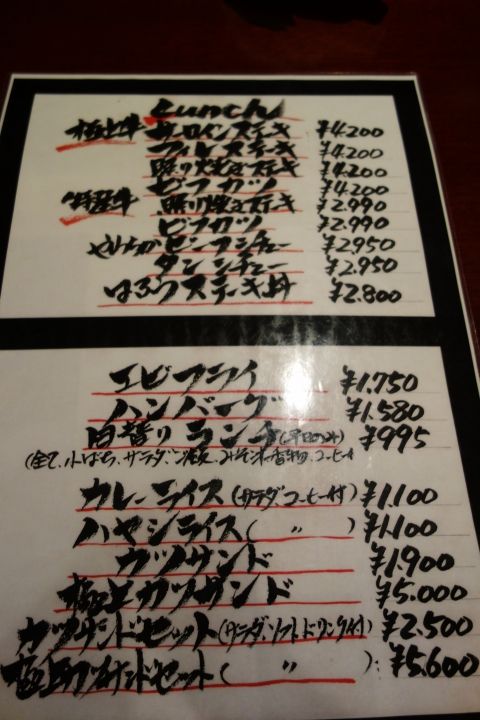 Lunch
極上牛 サーロインステーキ ¥4.200
フィレステーキ ¥4.200
照り焼きステーキ ¥4.200
ビフカツ ¥4.200
特選牛 照り焼きステーキ ¥2.990
ビフカツ ¥2.990
やわらかビーフシチュー ¥2950
タンシチュー ¥2.950
はろうステーキ丼 ¥2.800
エビフライ ¥1.750
ハンバーグ ¥1.580
日替りランチ(平日のみ) ¥995
(全て、小ばち、サラダ、ご飯、みそ汁、香物、コーヒー付
カレーライス(サラダ、コーヒー付) ¥1.100
ハヤシライス( 〃 ) ¥1.100
カツサンド ¥1.900
極上カツサンド ¥5.000
カツサンドセット(サラダ、ソフトドリンク付) ¥2.500
極上カツサンドセット( 〃 ) ¥5.600